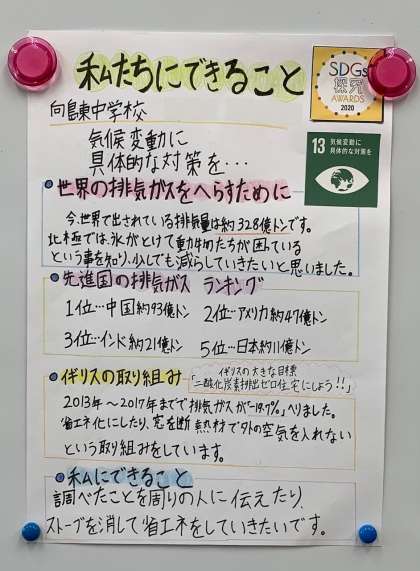 私たちにできること
SDGs
探究
AWARDS
2020
向島東中学校
気候変動に
具体的な対策を…
13 気候変動に
具体的な対策を
●世界の排気ガスをへらすために
今、世界で出されている排気量は約328億トンです。
北極では、氷がとけて動物たちが困っている
という事を知り、少しでも減らしていきたいと思いました。
●先進国の排気ガス ランキング
1位…中国約93億トン 2位…アメリカ約47億トン
3位…インド約21億トン 5位…日本約11億トン
●イギリスの取り組み
イギリスの大きな目標
「二酸化炭素排出ゼロ住宅にしよう!!」
2013年～2017年までで排気ガスが「-19.7%」へりました。
省エネ化にしたり、窓を断熱材で外の空気を入れない
という取り組みをしています。
●私にできること
調べたことを周りの人に伝えたり、
ストーブを消して省エネをしていきたいです。